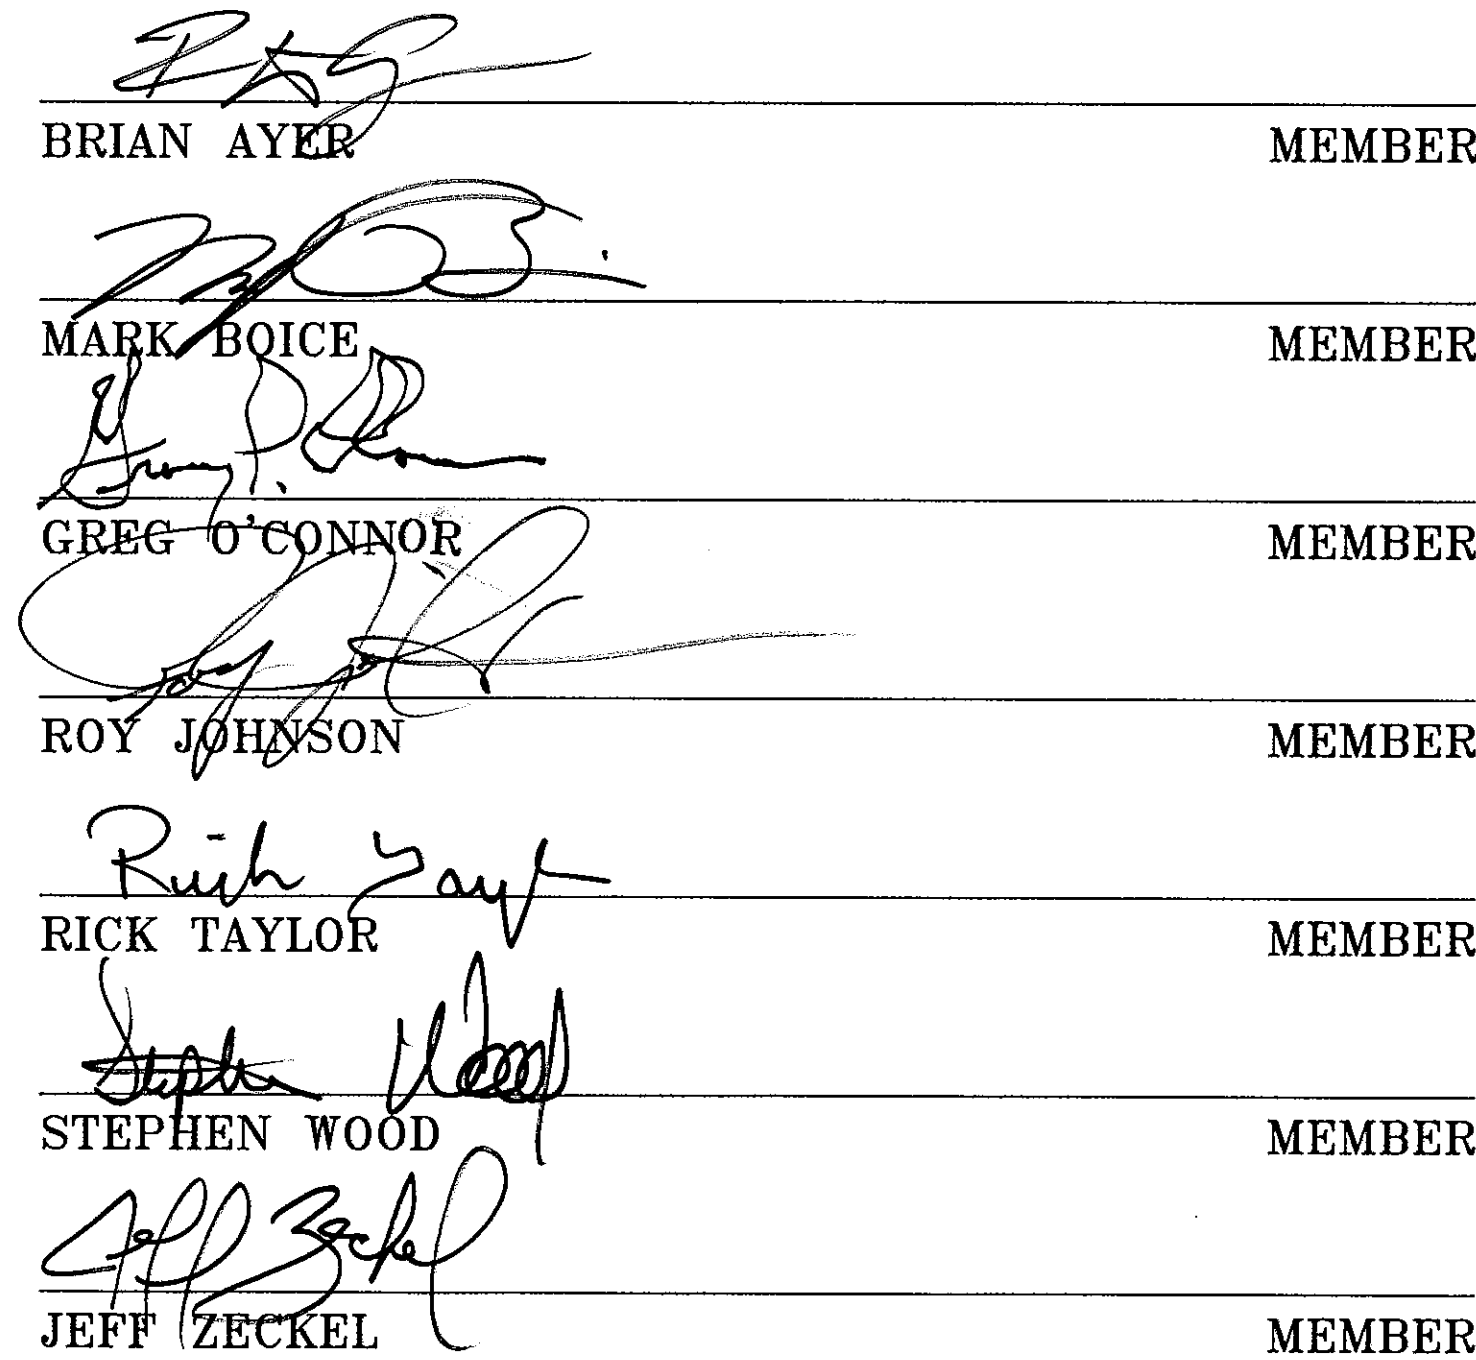 BRIAN AYER MEMBER
MARK BOICE MEMBER
GREG O'CONNOR MEMBER
ROY JOHNSON MEMBER
Rick Taylor
RICK TAYLOR MEMBER
Stephen Wood
STEPHEN WOOD MEMBER
Jeff Zeckel
JEFF ZECKEL MEMBER